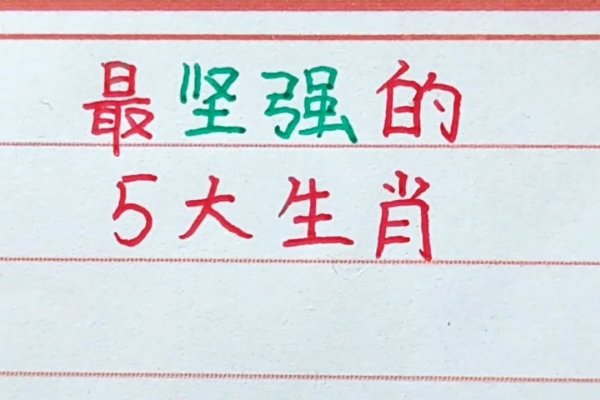 最坚强的
5大生肖